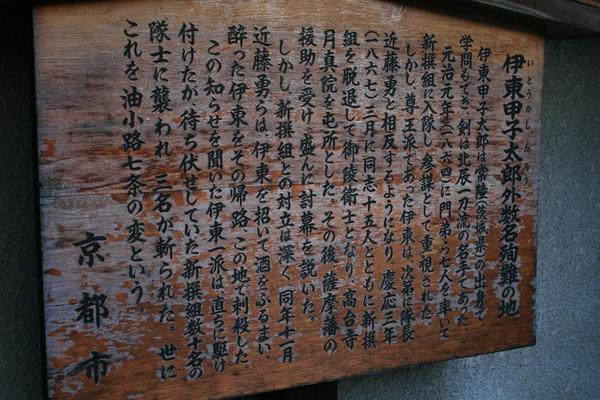 伊東甲子太郎外数名殉難の地
いとうかしたろう
伊東甲子太郎は常陸(茨城県)の出身で、
学問もでき、剣は北辰一刀流の名手であった。
元治元年(一八六四)に門弟ら七人を率いて
新撰組に入隊し、参謀として重視された。
しかし、尊王派であった伊東は、次第に隊長
近藤勇と相反するようになり、慶応三年
(一八六七)三月に同志十五人とともに新撰
組を脱退して御陵衛士となり、高台寺
月真院を屯所とした。その後、薩摩藩の
援助を受け、盛んに討幕を説いた。
しかし、新撰組との対立は深く、同年十一月
近藤勇らは、伊東を招いて酒をふるまい、
酔った伊東をその帰路、この地で刺殺した。
この知らせを聞いた伊東一派は、直ちに駆け
付けたが、待ち伏せしていた新撰組数十名の
隊士に襲われ、三名が斬られた。世に
これを油小路七条の変という。
京都市